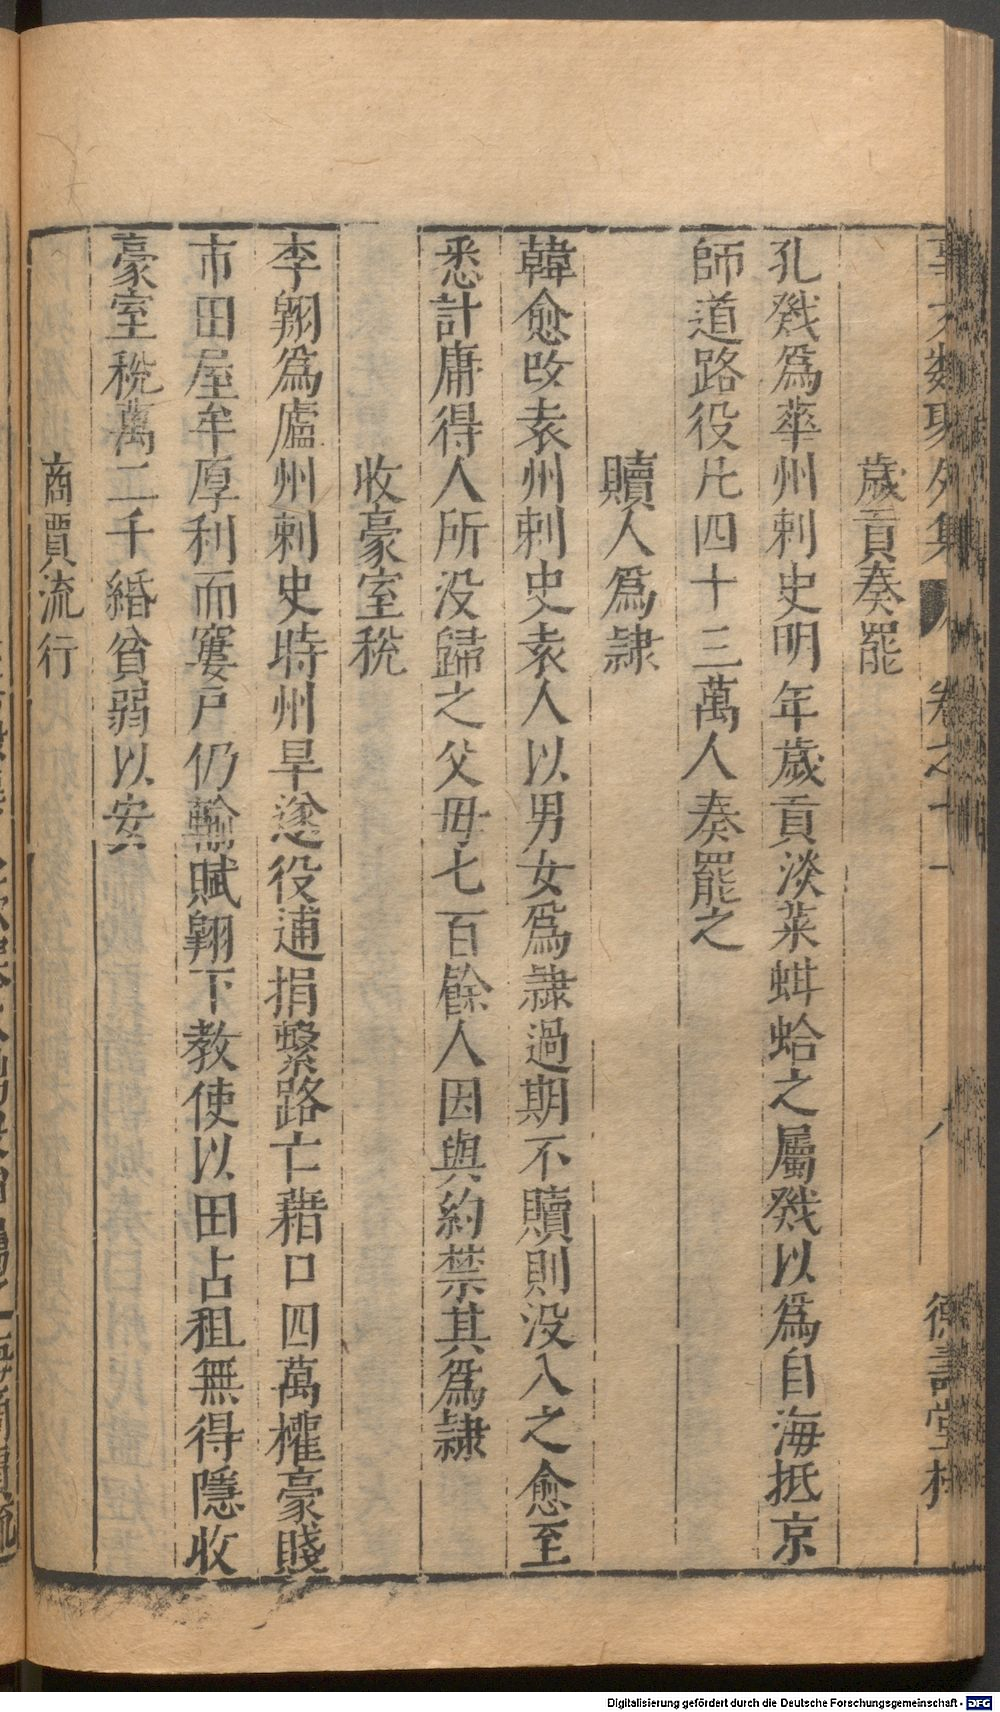 事文類聚外集 卷之十一 德壽堂梓
歲貢奏罷
孔戣爲華州刺史明年歲貢淡菜蚶蛤之屬戣以爲自海抵京
師道路役凡四十三萬人奏罷之
贖人爲隷
韓愈改袁州刺史袁人以男女爲隷過期不贖則没入之愈至
悉計庸得人所没歸之父母七百餘人因與約禁其爲隷
收豪室稅
李翺爲廬州刺史時州旱遂役逋捐繫路亡藉口四萬權豪賤
市田屋牟厚利而窶戶仍輸賦翺下教使以田占租無得隱收
豪室稅萬二千緡貧弱以安
商賈流行
Digitalisierung gefördert durch die Deutsche Forschungsgemeinschaft - DFG